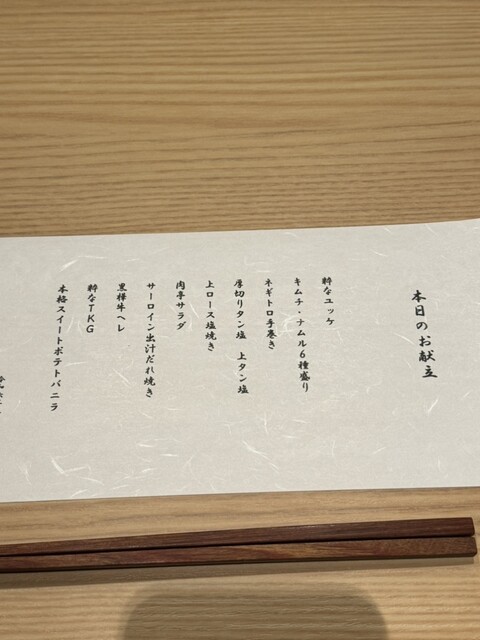 本日のお献立
粋なユッケ
キムチ・ナムル6種盛り
ネギトロ手巻き
厚切りタン塩 上タン塩
上ロース塩焼き
肉亭サラダ
サーロイン出汁だれ焼き
黒樺牛ヘレ
粋なTKG
本格スイートポテトバニラ